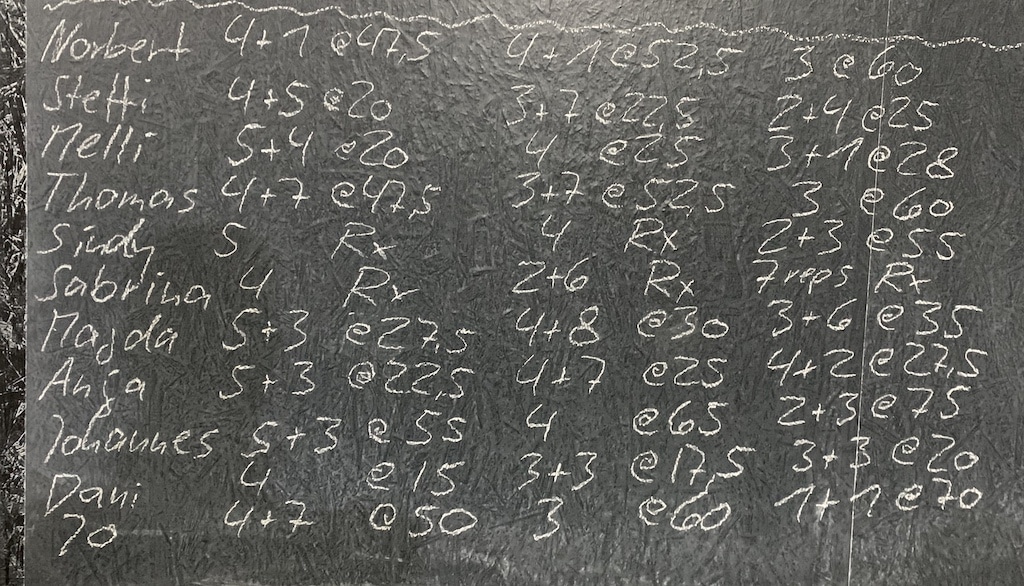 Norbert 4+1 @47,5 4+1@52,5 3 @ 60
Steffi 4+5 @20 3+7 @22,5 2+4 @25
Melli 5+4 @20 4 @25 3+1@28
Thomas 4+7 @47,5 3+7 @52,5 3 @60
Sindy 5 Rx 4 Rx 2+3 @55
Sabrina 4 Rx 2+6 Rx 7reps Rx
Magda 5+3 @27,5 4+8 @30 3+6 @35
Anja 5+3 @22,5 4+7 @25 4+2@27,5
Johannes 5+3 @55 4 @65 2+3@75
Dani 4 @15 3+3 @17,5 3+3 @20
Jo 4+7 @50 3 @60 1+1@70